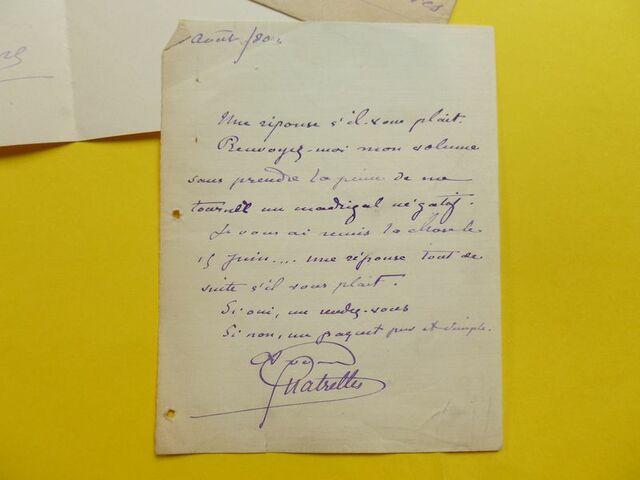 août /80.
Une réponse s'il vous plait.
Renvoyez-moi mon volume
sans prendre la peine de me
tourner un madrigal négatif.
Je vous ai remis la chose le
15 juin.... une réponse tout de
suite s'il vous plait.
Si oui, un rendez-vous
Si non, un paquet pur et simple.
Quatrelles